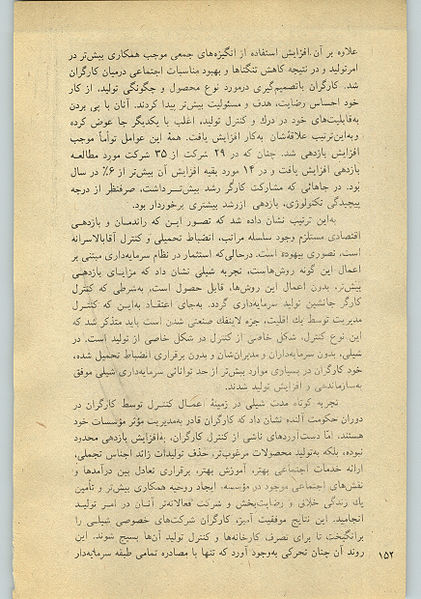 علاوه بر آن افزایش استفاده از انگیزه‌های جمعی موجب همکاری بیش‌تر در
امرتولید و در نتیجه کاهش تنگناها و بهبود مناسبات اجتماعی درمیان کارگران
شد. کارگران باتصمیم‌گیری درمورد نوع محصول و چگونگی تولید، از کار
خود احساس رضایت، هدف و مسئولیت بیش‌تر پیدا کردند. آنان با پی بردن
به‌قابلیت‌های خود در درك و کنترل تولید، اغلب با یکدیگر جا عوض کرده
و به‌این‌ترتیب علاقه‌شان به‌کار افزایش یافت. همهٔ این عوامل تواماً موجب
افزایش بازدهی شد. چنان که در ۲۹ شرکت از ۳۵ شرکت مورد مطالعه
بازدهی افزایش یافت و در ۱۴ مورد بقیه افزایش آن بیش‌تر از ۶٪ در سال
بود. در جاهائی که مشارکت کارگر رشد بیش‌تر داشت، صرفنظر از درجه
پیچیدگی تکنولوژی، بازدهی ازرشد بیشتری برخوردار بود.
به‌این ترتیب نشان داده شد که تصور این که راندمان و بازدهی
اقتصادی مستلزم وجود سلسله مراتب، انضباط تحمیلی و کنترل آقابالاسرانه
است، تصوری بیهوده است. درحالی‌که استثمار در نظام سرمایه‌داری مبتنی بر
اعمال این گونه روش‌هاست، تجربه شیلی نشان داد که مزایای بازدهی
بیش‌تر، بدون اعمال این روش‌ها، قابل حصول است، به‌شرطی که کنترل
کارگر جانشین تولید سرمایه‌داری گردد. به‌جای اعتقاد به‌این که کنترل
مدیریت توسط یك اقلیت، جزء لاینفك صنعتی شدن است باید متذکر شد که
این نوع کنترل، شکل خاصی از کنترل در شکل خاصی از تولید است. در
شیلی، بدون سرمایه‌داران و مدیران‌شان و بدون برقراری انضباط تحمیل شده،
خود کارگران در بسیاری موارد بیش‌تر از حد توانائی سرمایه‌داری شیلی موفق
به‌سازماندهی و افزایش تولید شدند.
تجربه کوتاه مدت شیلی در زمینهٔ اعمال کنترل توسط کارگران در
دوران حکومت آلنده نشان داد که کارگران قادر به‌مدیریت مؤثر مؤسسات خود
هستند. اما دست‌آوردهای ناشی از کنترل کارگران، به‌افزایش بازدهی محدود
نبوده، بلکه به‌تولید محصولات مرغوب‌تر، حذف تولیدات زائد اجناس تجملی،
ارائه خدمات اجتماعی بهتر، آموزش بهتر، برقراری تعادل بین درآمدها و
نقش‌های اجتماعی موجود در مؤسسه، ایجاد روحیه همکاری بیش‌تر و تأمین
یك زندگی خلاق و رضایت‌بخش و شرکت فعالانه‌تر آنان در امر تولید
انجامید. این نتایج موفقیت آمیز، کارگران شرکت‌های خصوصی شیلی را
برانگیخت تا برای تصرف کارخانه‌ها و کنترل تولید آن‌ها بسیج شوند. این
روند آن چنان تحرکی به‌وجود آورد که تنها با مصادره تمامی طبقه سرمایه‌دار
۱۵۲